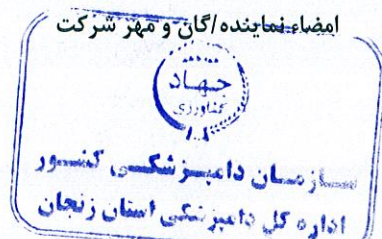 امضاء نماینده/گان و مهر شرکت
جهاد
کشاورزی
سازمان دامپزشکی کشور
اداره کل دامپزشکی استان زنجان